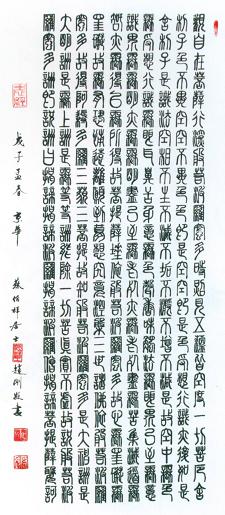 觀自在菩薩行深般若波羅蜜多時照見五蘊皆空度一切苦厄舍
利子色不異空空不異色色即是空空即是色受想行識亦復如是
舍利子是諸法空相不生不滅不垢不淨不增不減是故空中無色
無受想行識無眼耳鼻舌身意無色聲香味觸法無眼界乃至無意
識界無無明亦無無明盡乃至無老死亦無老死盡無苦集滅道無
智亦無得以無所得故菩提薩埵依般若波羅蜜多故心無罣礙無
罣礙故無有恐怖遠離顛倒夢想究竟涅槃三世諸佛依般若波羅
蜜多故得阿耨多羅三藐三菩提故知般若波羅蜜多是大神咒是
大明咒是無上咒是無等等咒能除一切苦真實不虛故說般若波
羅蜜多咒即說咒曰揭諦揭諦波羅揭諦波羅僧揭諦菩提薩婆訶
戊子孟春 京華 居士 敬書